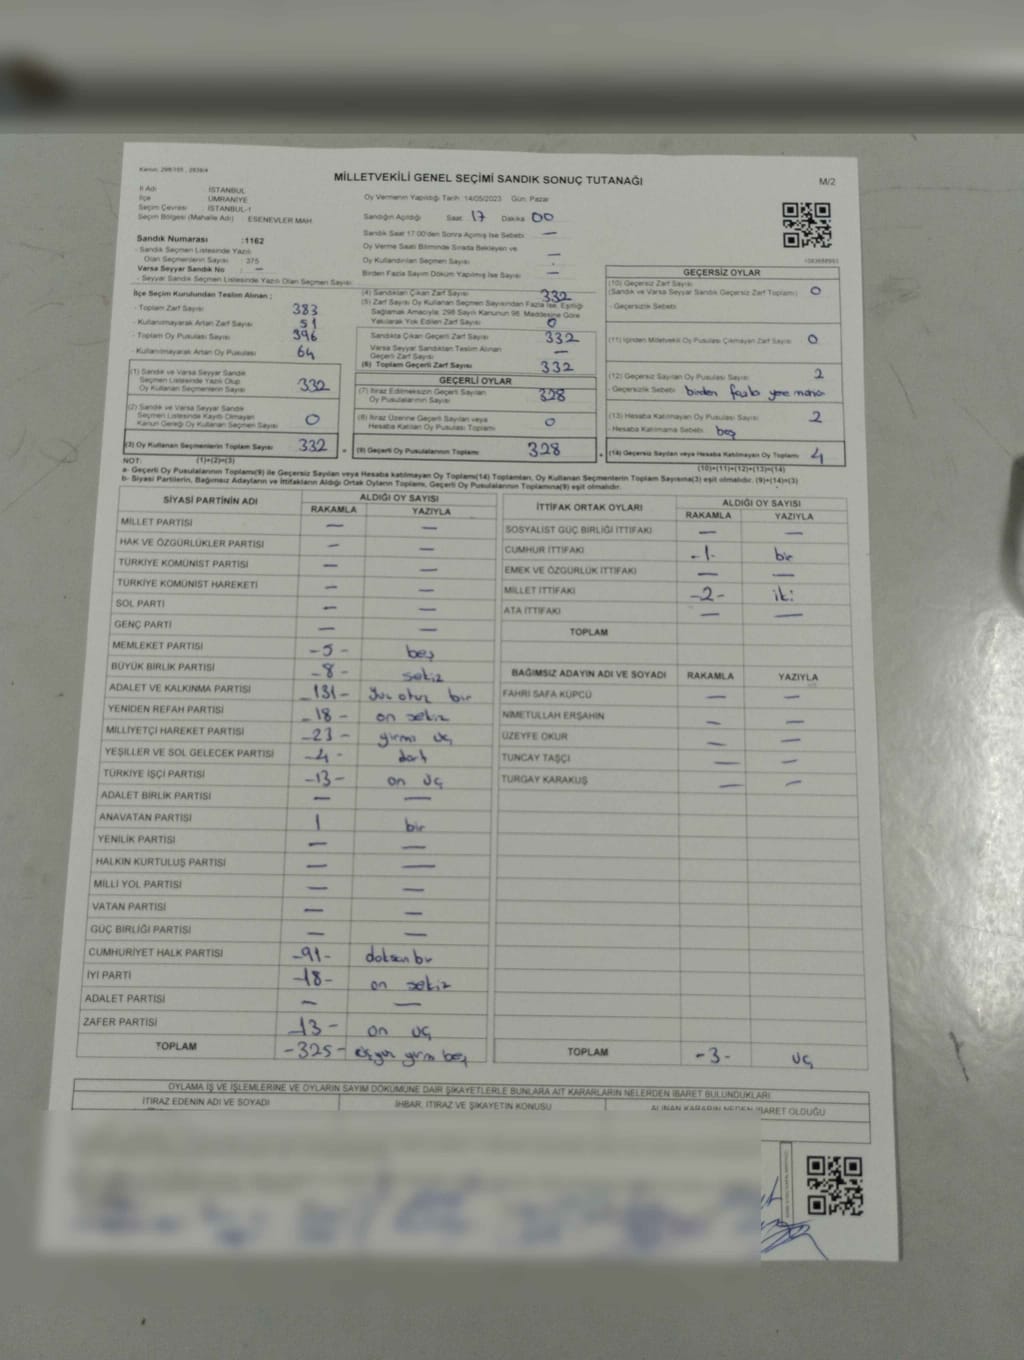 Kanun: 298/105 , 2839/4
MİLLETVEKİLİ GENEL SEÇİMİ SANDIK SONUÇ TUTANAĞI
M/2
İl Adı : İSTANBUL
İlçe : ÜMRANİYE
Seçim Çevresi : İSTANBUL-1
Seçim Bölgesi (Mahalle Adı) : ESENEVLER MAH
Oy Vermenin Yapıldığı Tarih :14/05/2023 Gün: Pazar
Sandığın Açıldığı Saat 17 Dakika 00
Sandık Saat 17:00'den Sonra Açılmış İse Sebebi —
Oy Verme Saati Bitiminde Sırada Bekleyen ve
Oy Kullandırılan Seçmen Sayısı —
Birden Fazla Sayım Döküm Yapılmış İse Sayısı —
Sandık Numarası :1162
- Sandık Seçmen Listesinde Yazılı
Olan Seçmenlerin Sayısı : 375
Varsa Seyyar Sandık No : —
- Seyyar Sandık Seçmen Listesinde Yazılı Olan Seçmen Sayısı:
İlçe Seçim Kurulundan Teslim Alınan ;
- Toplam Zarf Sayısı 383
- Kullanılmayarak Artan Zarf Sayısı 51
- Toplam Oy Pusulası Sayısı 396
- Kullanılmayarak Artan Oy Pusulası 64
(1) Sandık ve Varsa Seyyar Sandık
Seçmen Listesinde Yazılı Olup
Oy Kullanan Seçmenlerin Sayısı 332
(2) Sandık ve Varsa Seyyar Sandık
Seçmen Listesinde Kayıtlı Olmayan
Kanun Gereği Oy Kullanan Seçmen Sayısı 0
(3) Oy Kullanan Seçmenlerin Toplam Sayısı 332 =
(4) Sandıktan Çıkan Zarf Sayısı 332
(5) Zarf Sayısı Oy Kullanan Seçmen Sayısından Fazla İse, Eşitliği
Sağlamak Amacıyla, 298 Sayılı Kanunun 98. Maddesine Göre
Yakılarak Yok Edilen Zarf Sayısı 0
Sandıkta Çıkan Geçerli Zarf Sayısı 332
Varsa Seyyar Sandıktan Teslim Alınan
Geçerli Zarf Sayısı —
(6) Toplam Geçerli Zarf Sayısı 332
GEÇERLİ OYLAR
(7) İtiraz Edilmeksizin Geçerli Sayılan
Oy Pusulalarının Sayısı 328
(8) İtiraz Üzerine Geçerli Sayılan veya
Hesaba Katılan Oy Pusulası Toplamı 0
(9) Geçerli Oy Pusulalarının Toplamı 328 +
1083688993
GEÇERSİZ OYLAR
(10) Geçersiz Zarf Sayısı
(Sandık ve Varsa Seyyar Sandık Geçersiz Zarf Toplamı) 0
- Geçersizlik Sebebi
(11) İçinden Milletvekili Oy Pusulası Çıkmayan Zarf Sayısı 0
(12) Geçersiz Sayılan Oy Pusulası Sayısı 2
- Geçersizlik Sebebi birden fazla yere mühür
(13) Hesaba Katılmayan Oy Pusulası Sayısı 2
- Hesaba Katılmama Sebebi boş
(14) Geçersiz Sayılan veya Hesaba Katılmayan Oy Toplamı 4
NOT: (1)+(2)=(3)
(10)+(11)+(12)+(13)=(14)
a- Geçerli Oy Pusulalarının Toplamı(9) ile Geçersiz Sayılan veya Hesaba katılmayan Oy Toplamı(14) Toplamları, Oy Kullanan Seçmenlerin Toplam Sayısına(3) eşit olmalıdır. (9)+(14)=(3)
b- Siyasi Partilerin, Bağımsız Adayların ve İttifakların Aldığı Ortak Oyların Toplamı, Geçerli Oy Pusulalarının Toplamına(9) eşit olmalıdır.
SİYASİ PARTİNİN ADI ALDIĞI OY SAYISI
RAKAMLA YAZIYLA
MİLLET PARTİSİ — —
HAK VE ÖZGÜRLÜKLER PARTİSİ — —
TÜRKİYE KOMÜNİST PARTİSİ — —
TÜRKİYE KOMÜNİST HAREKETİ — —
SOL PARTİ — —
GENÇ PARTİ — —
MEMLEKET PARTİSİ -5- beş
BÜYÜK BİRLİK PARTİSİ -8- sekiz
ADALET VE KALKINMA PARTİSİ -131- yüz otuz bir
YENİDEN REFAH PARTİSİ -18- on sekiz
MİLLİYETÇİ HAREKET PARTİSİ -23- yirmi üç
YEŞİLLER VE SOL GELECEK PARTİSİ -4- dört
TÜRKİYE İŞÇİ PARTİSİ -13- on üç
ADALET BİRLİK PARTİSİ — —
ANAVATAN PARTİSİ 1 bir
YENİLİK PARTİSİ — —
HALKIN KURTULUŞ PARTİSİ — —
MİLLİ YOL PARTİSİ — —
VATAN PARTİSİ — —
GÜÇ BİRLİĞİ PARTİSİ — —
CUMHURİYET HALK PARTİSİ -91- doksan bir
İYİ PARTİ -18- on sekiz
ADALET PARTİSİ — —
ZAFER PARTİSİ -13- on üç
TOPLAM -325- üçyüz yirmi beş
İTTİFAK ORTAK OYLARI ALDIĞI OY SAYISI
RAKAMLA YAZIYLA
SOSYALİST GÜÇ BİRLİĞİ İTTİFAKI — —
CUMHUR İTTİFAKI -1- bir
EMEK VE ÖZGÜRLÜK İTTİFAKI — —
MİLLET İTTİFAKI -2- iki
ATA İTTİFAKI — —
TOPLAM
BAĞIMSIZ ADAYIN ADI VE SOYADI RAKAMLA YAZIYLA
FAHRİ SAFA KÜPCÜ — —
NİMETULLAH ERŞAHİN — —
ÜZEYFE OKUR — —
TUNCAY TAŞÇI — —
TURGAY KARAKUŞ — —
TOPLAM -3- üç
OYLAMA İŞ VE İŞLEMLERİNE VE OYLARIN SAYIM DÖKÜMÜNE DAİR ŞİKAYETLERLE BUNLARA AİT KARARLARIN NELERDEN İBARET BULUNDUKLARI
İTİRAZ EDENİN ADI VE SOYADI İHBAR, İTİRAZ VE ŞİKAYETİN KONUSU ALINAN KARARIN NEDEN İBARET OLDUĞU